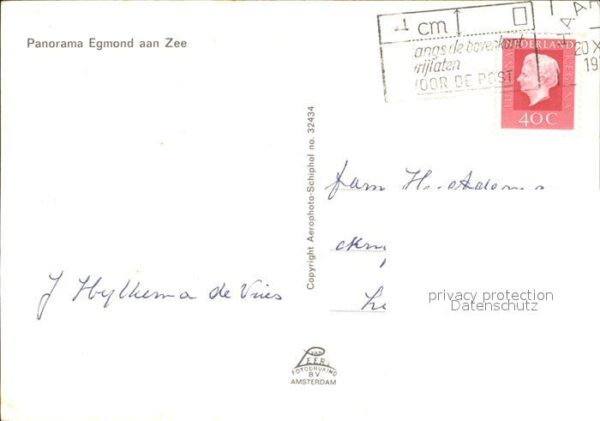 Panorama Egmond aan Zee
1 cm
langs de bovenkant
vrijlaten
VOOR DE POST
20 X
19
NEDERLAND
40 C
Copyright Aerophoto-Schiphol no. 32434
fam H.
J Hylkema de Vries
privacy protection
Datenschutz
VAN
LEER'S
FOTODRUKIND
BV
AMSTERDAM